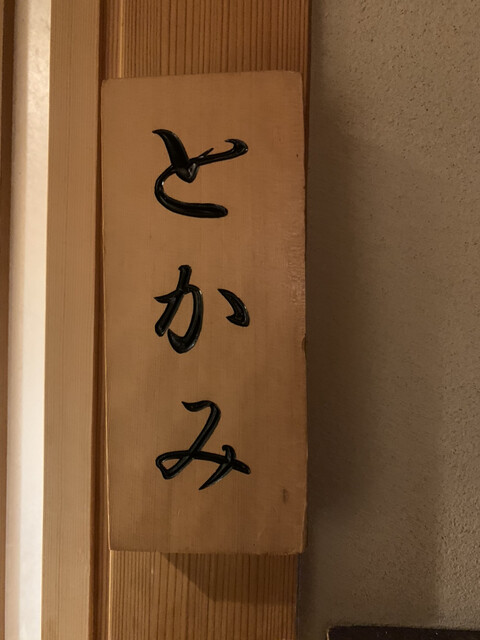 とかみ